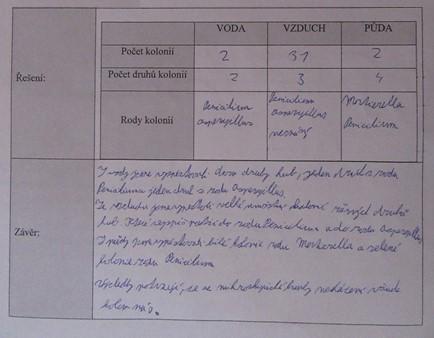 VODA VZDUCH PŮDA
Řešení:
Počet kolonií 2 31 2
Počet druhů kolonií 2 3 4
Rody kolonií Penicilium Penicilium Mortierella
aspergillus aspergillus Penicilium
neznámý
Závěr:
Z vody jsme vypěstovali dva druhy hub, jeden druh z rodu
Penicilium a jeden druh z rodu Aspergillus.
Ze vzduchu jsme vypěstovali velké množství kolonií různých druhů
hub. Které nejspíš patří do rodu Penicilium a do rodu Aspergillus
Z půdy jsme vypěstovali bílé kolonie rodu Mortierella a zelené
kolonie rodu Penicilium
výsledky potvrzují, že se mikroskopické houby nacházejí všude
kolem nás.